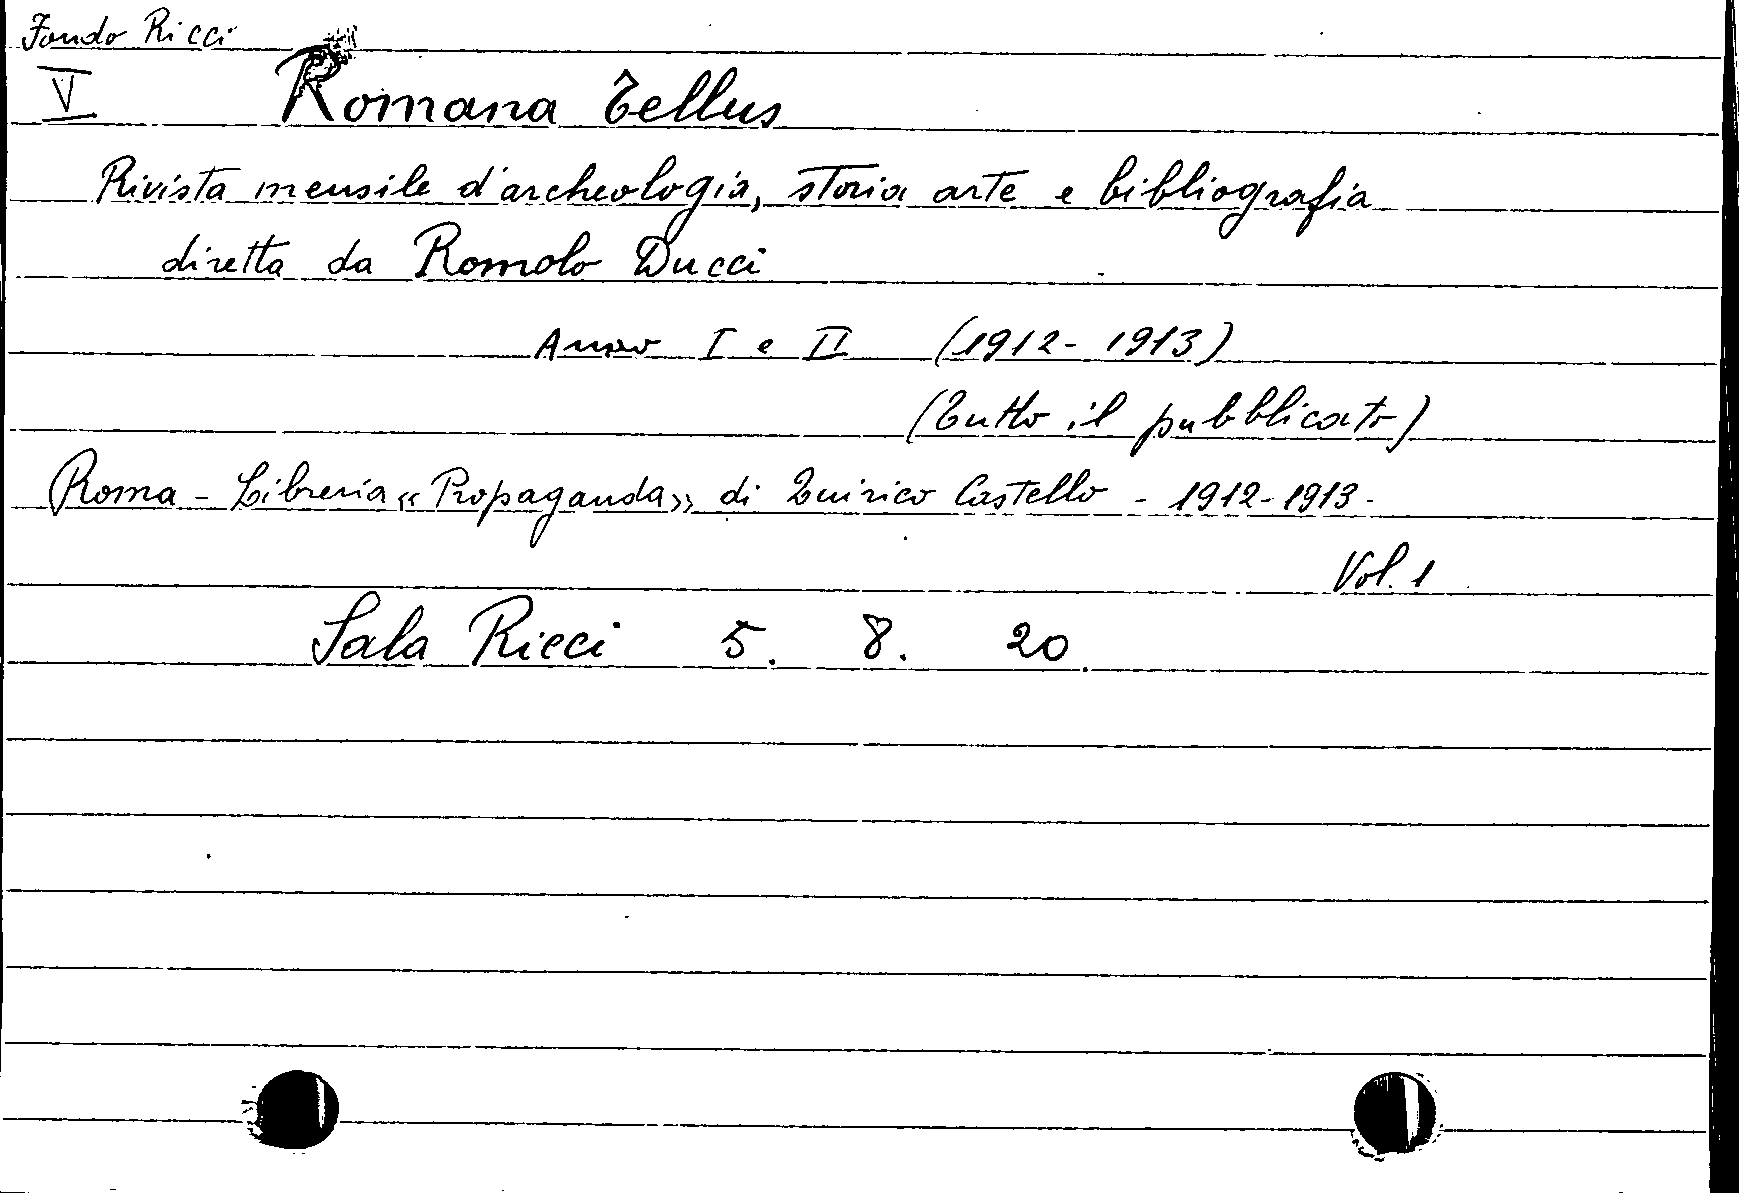 Fondo Ricci
V Romana Tellus
Rivista mensile d'archeologia, storia arte e bibliografia
diretta da Romolo Ducci
Anno I e II (1912-1913)
(Tutto il pubblicato)
Roma - Libreria «Propaganda» di Quirico Castello - 1912-1913 -
Vol. 1
Sala Ricci 5. 8. 20.